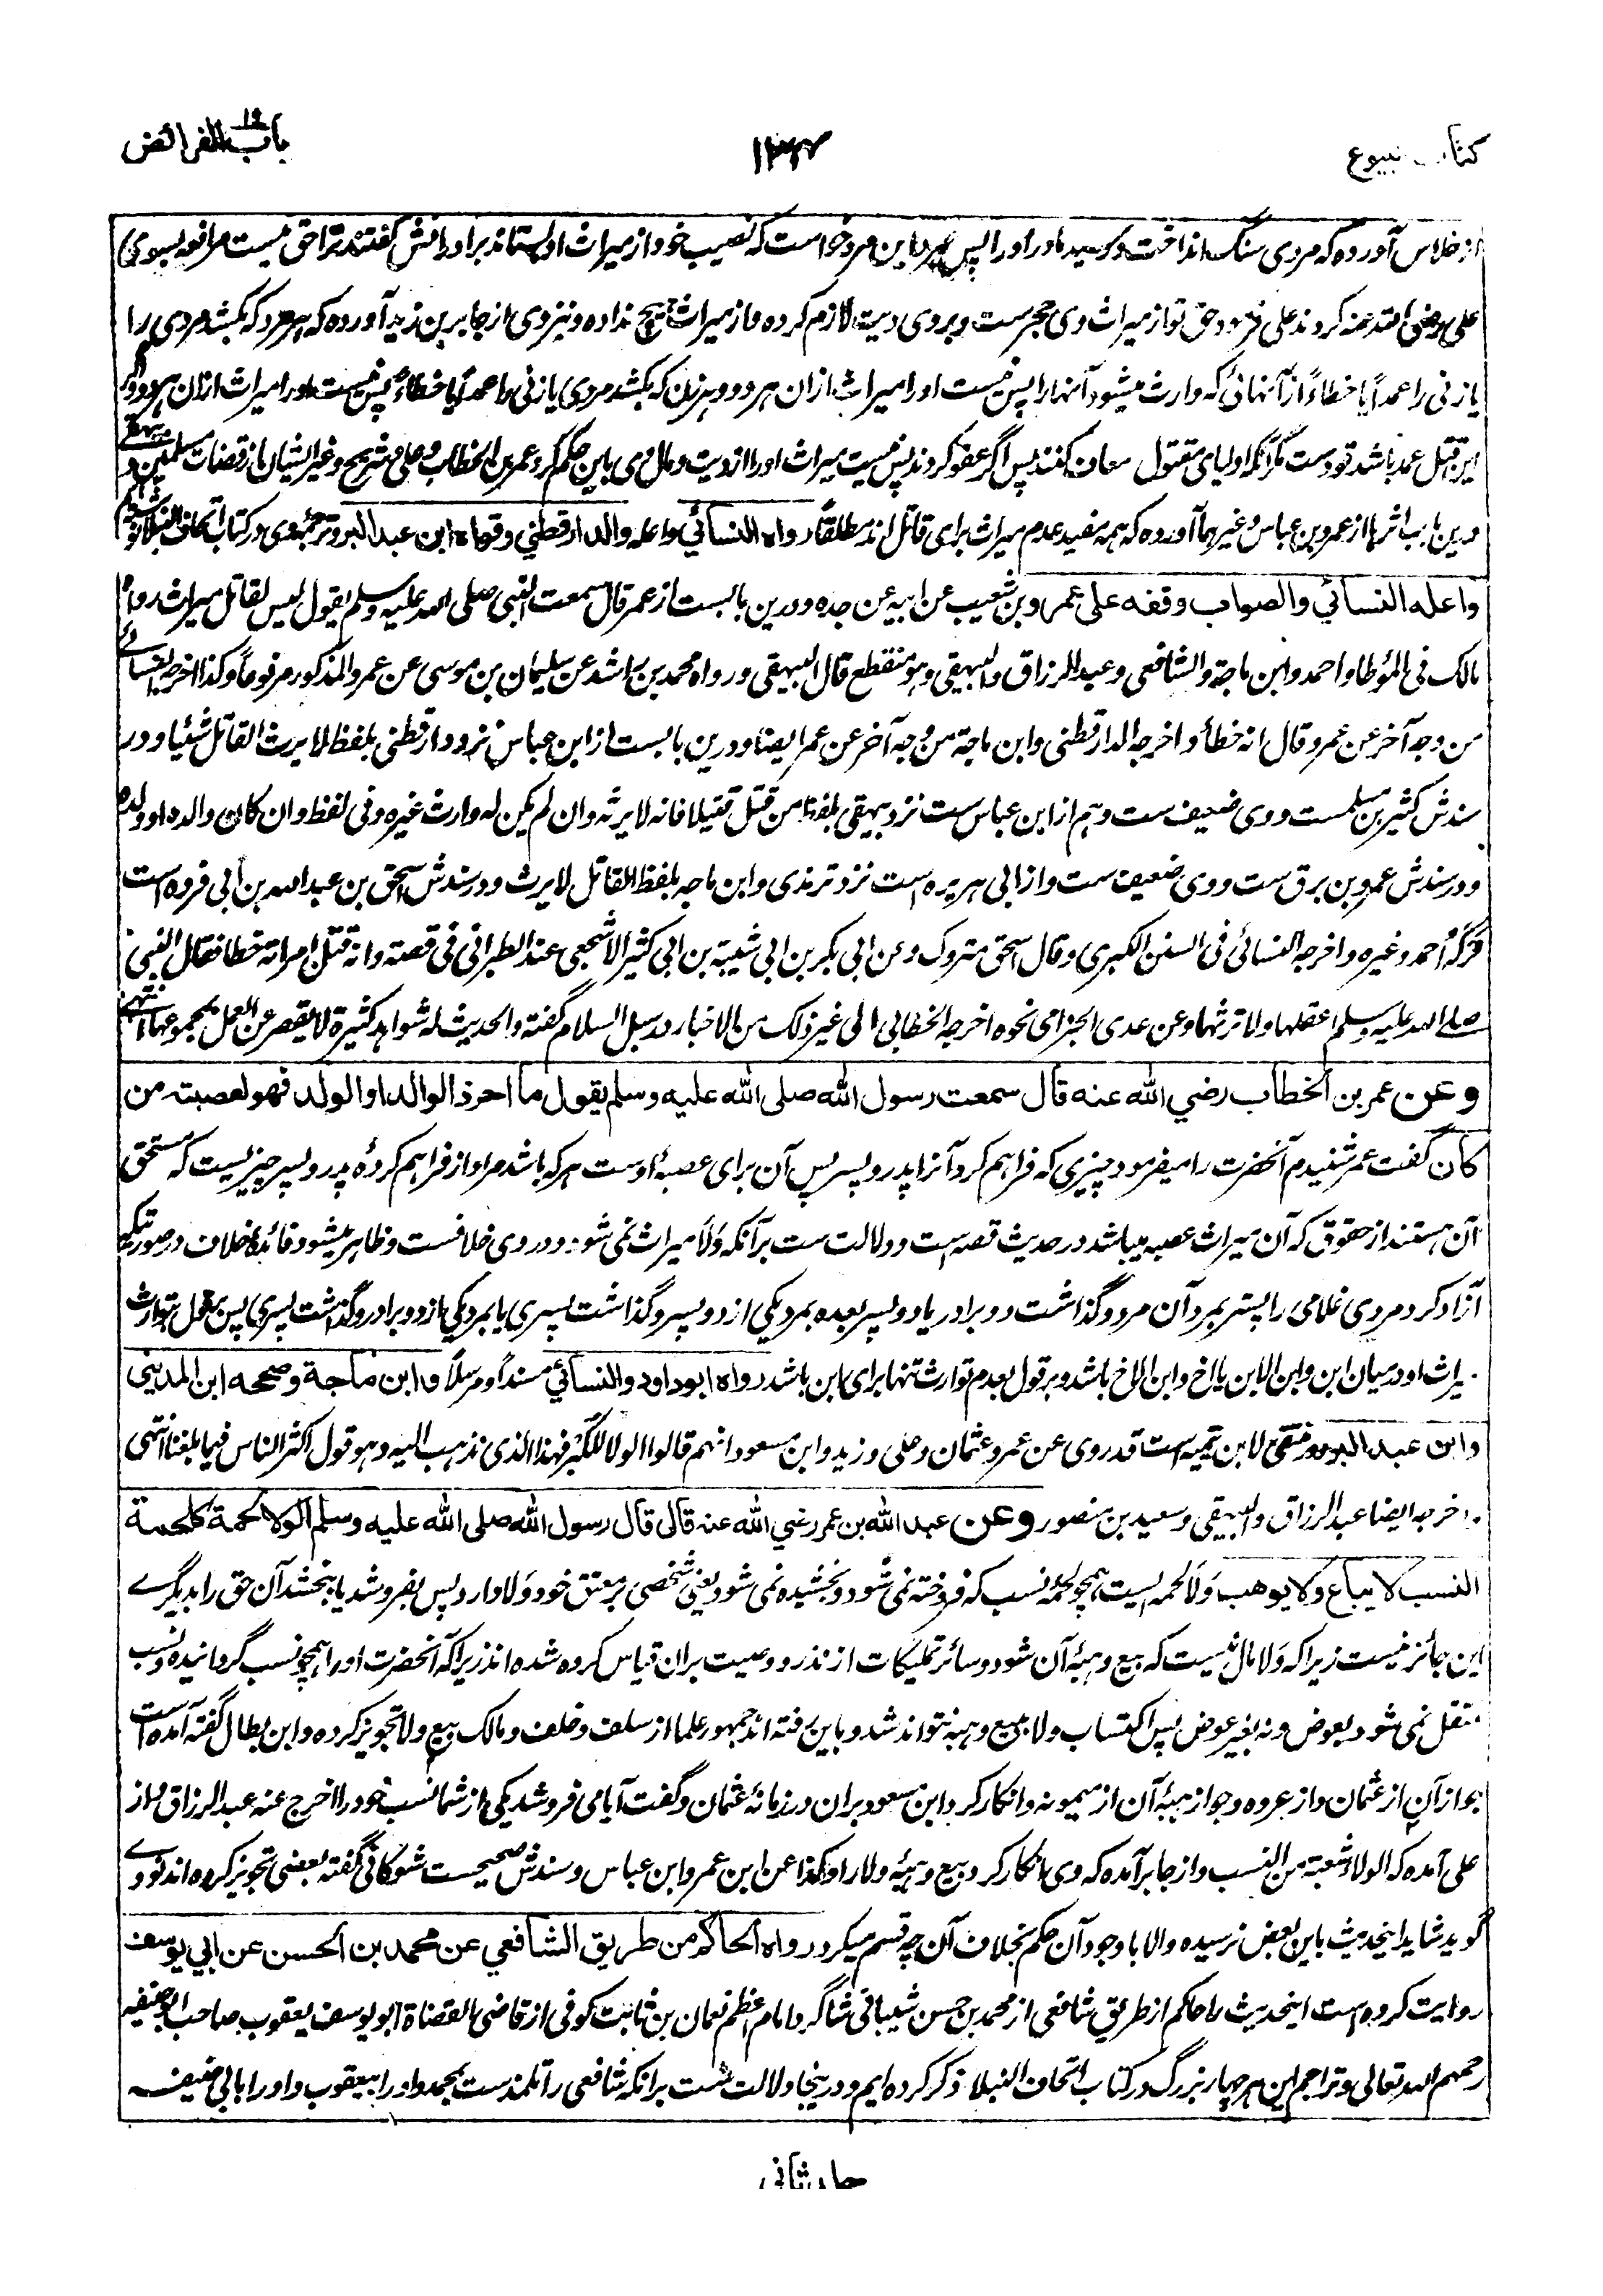 کتاب بیوع
۱۳۴
باب الفرائض
از خلاس آورده که مردی سنگ انداخت و رسید مادر او را پس بمرد این مرد خواست که نصیب خود از میراث او بستاند برادرانش گفتند ترا حق نیست مرافعه بسوی
علی رضی الله عنه کردند علی فرمود حق تو از میراث وی حجرست و بروی دیت لازم کرده و از میراث هیچ نداده و نیز وی از جابر بن زید آورده که هر مرد که بکشد مردی را
یا زنی را عمداً یا خطاءً از آنهائی که وارث میشود آنها را پس نیست او را میراث ازان هر دو و هر زن که بکشد مردی یا زنی را عمداً یا خطاءً پس نیست او را میراث ازان هر دو و اگر
این قتل عمد باشد قودست مگر آنکه اولیای مقتول معاف کنند پس اگر عفو کردند پس نیست میراث او را از دیت و مال وی باین حکم کرد عمر بن الخطاب و علی و شریح و غیر ایشان از قضات مسلمین و بیهقی
درین باب اثرها از عمر و ابن عباس و غیرهما آورده که همه مفید عدم میراث برای قاتل اند مطلقاً رواه النسائي والدارقطني وقواه ابن عبد البر و ترجمه وی در کتاب اتحاف النبلا نوشته ایم
واعله النسائي والصواب وقفه علی عمرو بن شعیب عن ابیه عن جده و درین بابست از عمر قال سمعت النبی صلی الله علیه وسلم یقول لیس لقاتل میراث رواه
مالک فی المؤطا و احمد و ابن ماجة والشافعی و عبد الرزاق والبیهقی وهو منقطع قال البیهقی و رواه محمد بن راشد عن سلیمان بن موسی عن عمرو المذکور مرفوعاً وکذا اخرجه النسائے
من وجه آخر عن عمرو قال انه خطأ و اخرجه الدارقطنی و ابن ماجة من وجه آخر عن عمر ایضا و درین بابست از ابن عباس نزد دارقطنی بلفظ لا یرث القاتل شیئا و در
سندش کثیر بن مسلمست و وی ضعیف ست و هم از ابن عباس ست نزد بیهقی بلفظ من قتل قتیلا فانه لا یرثه وان لم یکن له وارث غیره وفی لفظ وان کان والده او ولده
و در سندش عمرو بن برق ست و وی ضعیف ست و از ابی هریره است نزد ترمذی و ابن ماجه بلفظ القاتل لا یرث و در سندش اسحق بن عبد الله بن أبی فروه است
ترکه احمد وغیره و اخرجه النسائی فی السنن الکبری وقال اسحق متروک وعن ابی بکر بن ابی شیبة بن ابی کثیر الاشجعی عند الطبرانی فی قصته وانه قتل امراته خطأ فقال النبی
صلے الله علیه وسلم اعقلها ولا ترثها وعن عدی الجذامی نحوه اخرجه الخطابی الی غیر ذلک من الاخبار در سبل السلام گفته والحدیث له شواهد کثیرة لا یقصر عن العمل بمجموعها انتهی
وعن عمر بن الخطاب رضي الله عنه قال سمعت رسول الله صلى الله عليه وسلم يقول ما احرز الوالد او الولد فهو لعصبته من
کان گفت عمر شنیدم آنحضرت را میفرمود چیزی که فراهم کرد آنرا پدر و پسر پس آن برای عصبهٔ اوست هر که باشد مراد از فراهم کردهٔ پدر و پسر چیزیست که مستحق
آن هستند از حقوق که آن میراث عصبه میباشد در حدیث قصه است و دلالت ست بر آنکه وَلَا میراث نمی شود و دروی خلافست و ظاهر میشود فائدهٔ خلاف در صورتیکه
آزاد کرد مردی غلامی را پستر بمرد آن مرد و گذاشت دو برادر یا دو پسر بعده بمرد یکی از دو پسر و گذاشت پسری یا بمرد یکی از دو برادر و گذاشت پسری پس بقول بتوارث
میراث او درمیان ابن و ابن الابن یا اخ و ابن الاخ باشد و بر قول بعدم توارث تنها برای ابن باشد رواه ابوداود والنسائي مسنداً و مرسلاً وابن ماجة وصححه ابن المديني
وابن عبد البر و در منتقی لابن تیمیه است قد روی عن عمر و عثمان و علی و زید و ابن مسعود انهم قالوا الولا للکبر فهذا الذی نذهب الیه وهو قول اکثر الناس فیما بلغنا انتهی
و اخرجه ایضا عبد الرزاق والبیهقی و سعید بن منصور وعن عبد الله بن عمر رضي الله عنه قال قال رسول الله صلى الله عليه وسلم الولا لحمة كلحمة
النسب لا يباع ولا يوهب وَلَا لحمه ایست همچو لحمهٔ نسب که فروخته نمی شود و بخشیده نمی شود یعنی شخصی بر معتق خود وَلَا دارد پس بفروشد یا بخشد آن حق را بدیگرے
این جائز نیست زیرا که وَلَا مال نیست که بیع و هبهٔ آن شود و سائر تملیکات از نذر و وصیت بران قیاس کرده شده اند زیرا که آنحضرت او را همچو نسب گردانیده و نسب
منتقل نمی شود بعوض و نه بغیر عوض پس اکتساب ولا ببیع و هبه نتواند شد و باین رفته اند جمهور علما از سلف و خلف و مالک بیع ولا تجویز کرده و ابن بطال گفته آمده است
جواز آن از عثمان و از عروه و جواز هبهٔ آن از میمونه و انکار کرد ابن مسعود بران در زمانهٔ عثمان و گفت آیا می فروشد یکی از شما نسب خود را اخرج عنه عبد الرزاق و از
علی آمده که الولا شعبة من النسب و از جابر آمده که وی انکار کرد بیع و هبهٔ ولا را و کذا عن ابن عمر و ابن عباس و سندش صحیحست شوکانی گفته بعضی تجویز کرده اند نووے
گوید شاید اینحدیث باین بعض نرسیده والا با وجود آن حکم بخلاف آن چه قسم میکرد رواه الحاكم من طريق الشافعي عن محمد بن الحسن عن ابي يوسف
روایت کرده است اینحدیث را حاکم از طریق شافعی از محمد بن حسن شیبانی شاگرد امام اعظم نعمان بن ثابت کوفی از قاضی القضاة ابو یوسف یعقوب صاحب ابو حنیفه
رحمهم الله تعالی و تراجم این هر چهار بزرگ در کتاب اتحاف النبلا ذکر کرده ایم و درینجا دلالت ست بر آنکه شافعی را تلمذست بمحمد و او را بیعقوب و او را بابی حنیفه
جلد ثانی